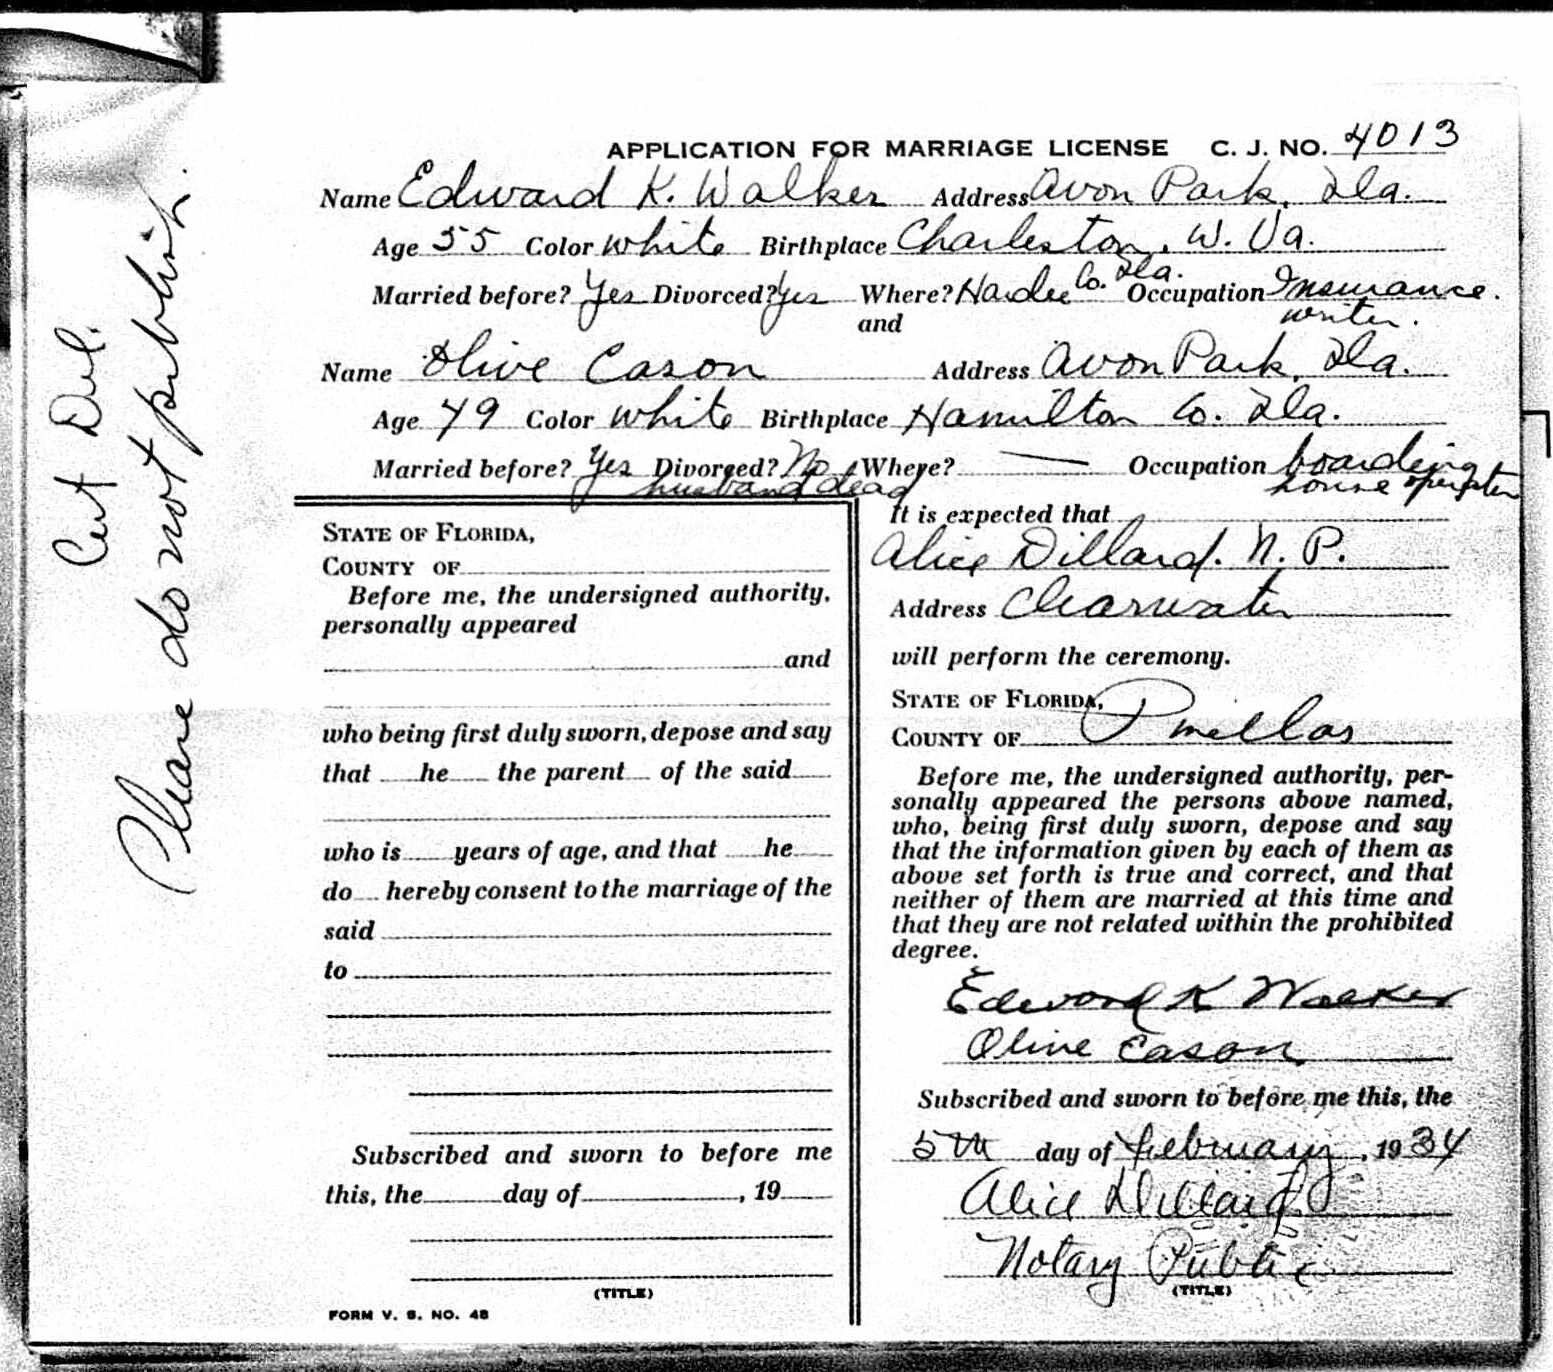 APPLICATION FOR MARRIAGE LICENSE C. J. NO. 4013
Name Edward K. Walker Address Avon Park, Fla.
Age 55 Color white Birthplace Charleston, W. Va.
Married before? Yes Divorced? Yes Where? Hardee Co. Fla. Occupation Insurance
writer.
and
Name Olive Cason Address Avon Park, Fla.
Age 49 Color white Birthplace Hamilton Co. Fla.
Married before? Yes Divorced? No Where? — Occupation boarding
husband dead house operator
STATE OF FLORIDA,
COUNTY OF
Before me, the undersigned authority,
personally appeared
and
who being first duly sworn, depose and say
that he the parent of the said
who is years of age, and that he
do hereby consent to the marriage of the
said
to
Subscribed and sworn to before me
this, the day of , 19
(TITLE)
FORM V. S. NO. 48
It is expected that
Alice Dillard. N. P.
Address Clearwater
will perform the ceremony.
STATE OF FLORIDA,
COUNTY OF Pinellas
Before me, the undersigned authority, per-
sonally appeared the persons above named,
who, being first duly sworn, depose and say
that the information given by each of them as
above set forth is true and correct, and that
neither of them are married at this time and
that they are not related within the prohibited
degree.
Edward K Walker
Olive Cason
Subscribed and sworn to before me this, the
5th day of February, 1934
Alice Dillard
Notary Public
(TITLE)
Cert Del.
Please do not publish.